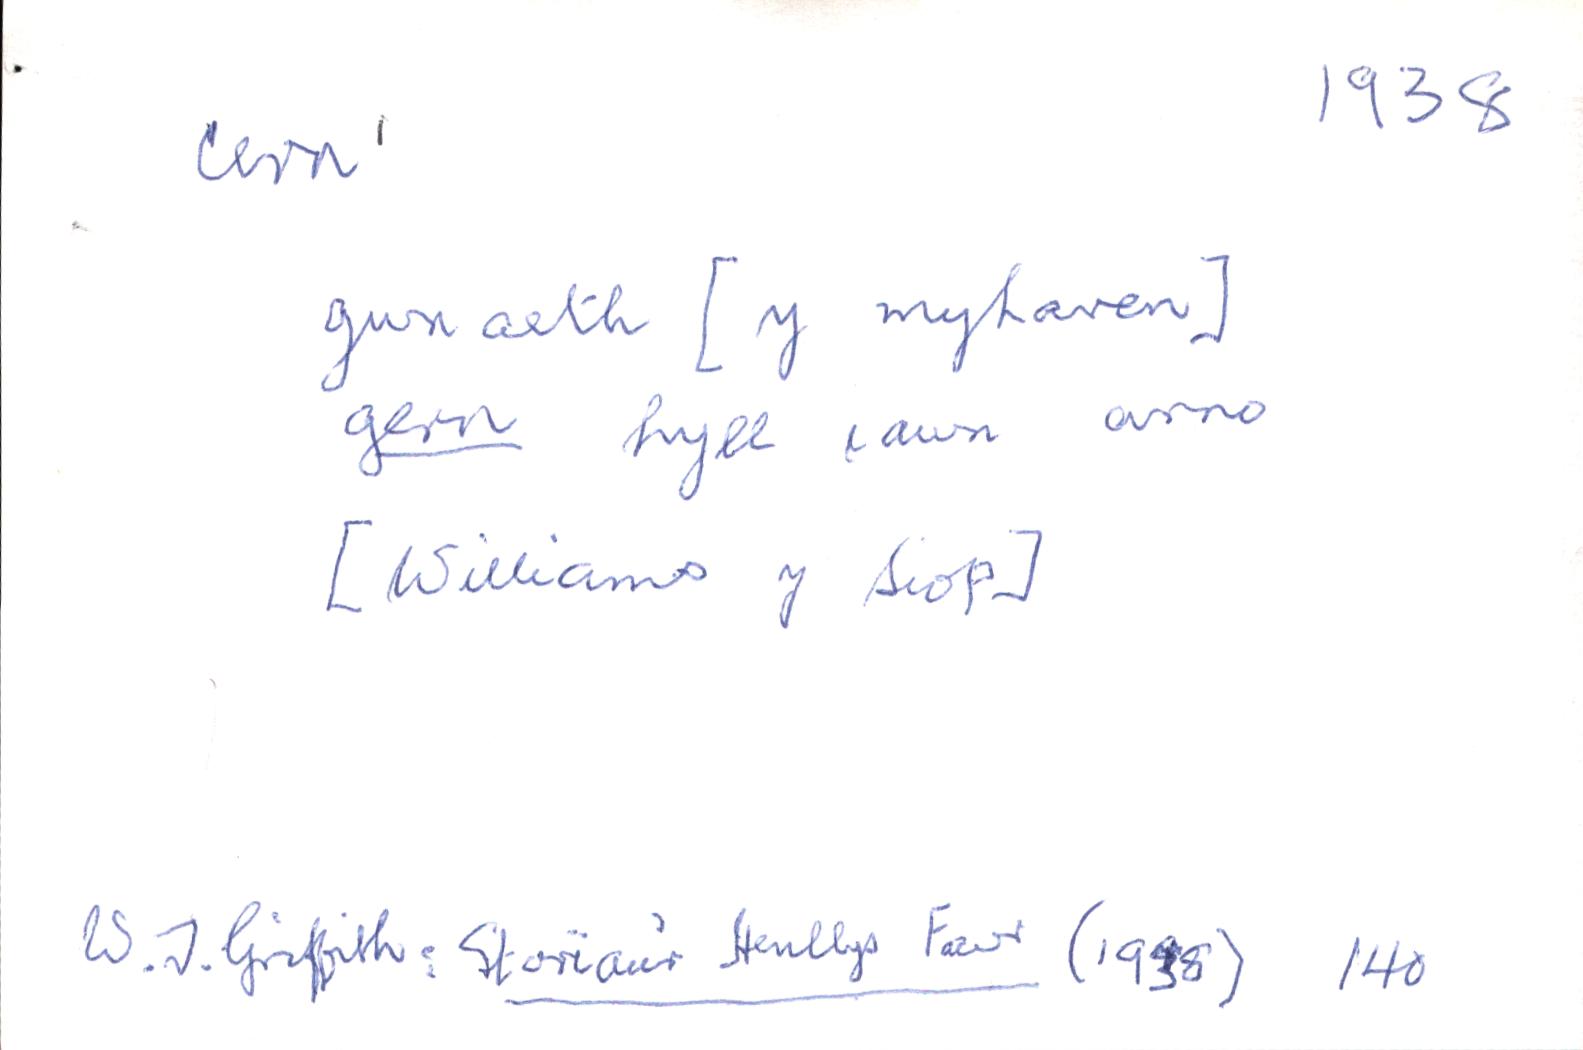 1938
cern'
gwnaeth [y myharen]
gern hyll iawn arno
[Williams y Siop]
W. J. Griffith: Storïau'r Henllys Fawr (1938) 140